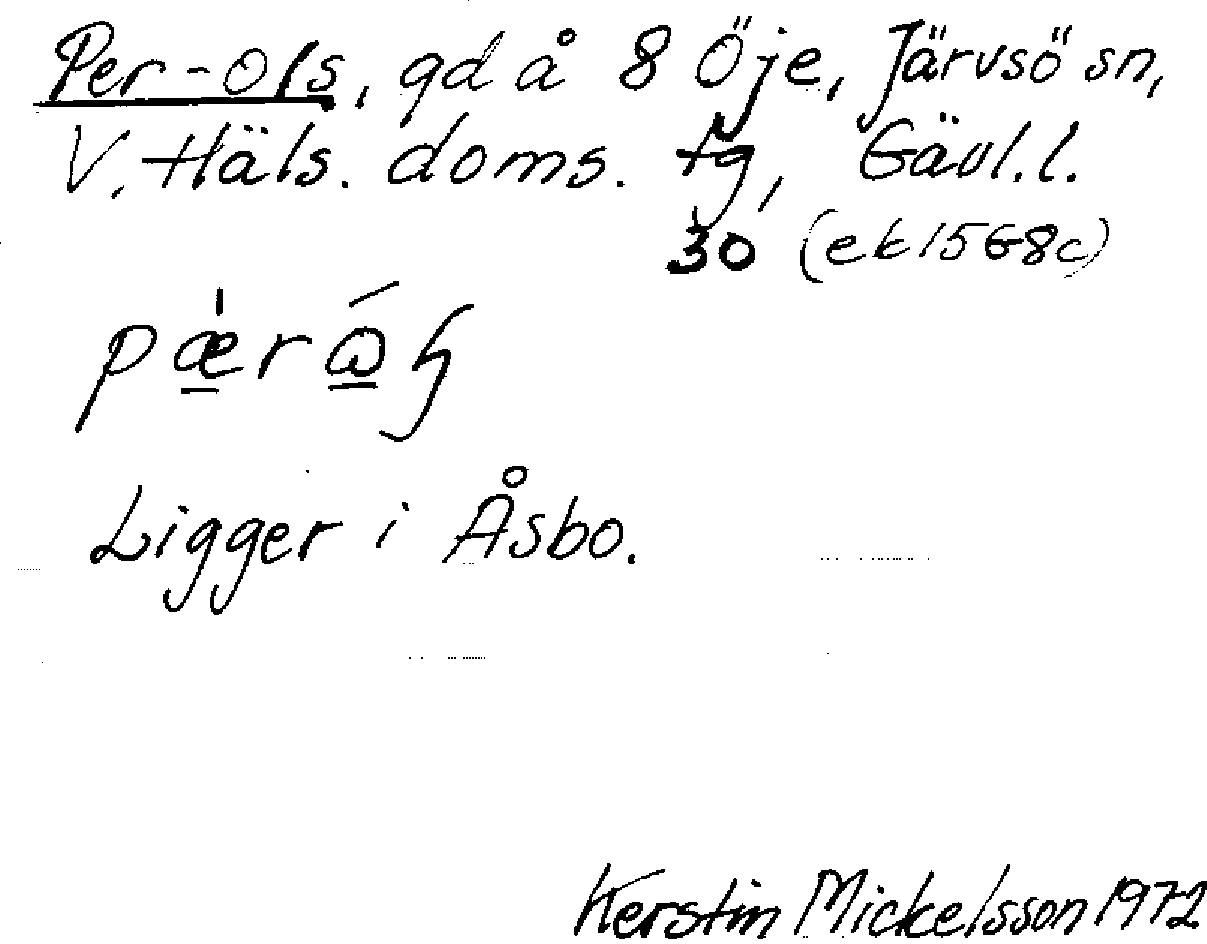 Per-Ols, gd å 8 Öje, Järvsö sn,
V. Häls. doms. tg, Gävl. l.
30 (ek 15G8c)
Ligger i Åsbo.
Kerstin Mickelsson 1972